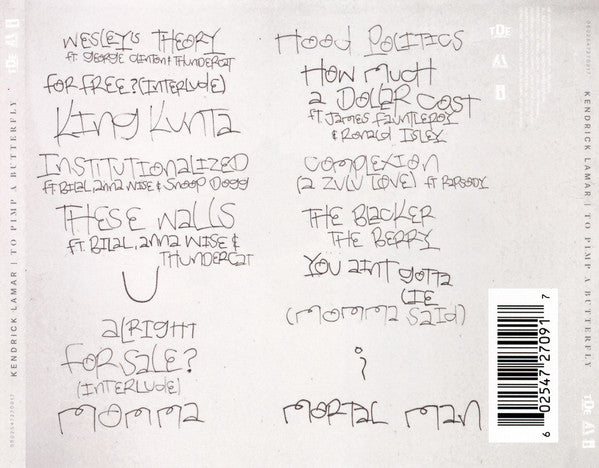 WESLEY'S THEORY
ft. GEORGE CLINTON & THUNDERCAT
FOR FREE? (INTERLUDE)
KING KUNTA
INSTITUTIONALIZED
ft BILAL, anna WISE & SNOOP DOGG
THESE WALLS
ft. BILAL, anna WISE &
THUNDERCAT
U
ALRIGHT
FOR SALE?
(INTERLUDE)
MOMMA
HOOD POLITICS
HOW MUCH
a DOLLAR COST
ft JAMES FAUNTLEROY
& RONALD ISLEY
COMPLEXION
(a ZULU LOVE) ft RAPSODY
THE BLACKER
THE BERRY
YOU aint gotta
LIE
(MOMMA SAID)
i
MORTAL MAN
KENDRICK LAMAR | TO PIMP A BUTTERFLY
TDE
KENDRICK LAMAR | TO PIMP A BUTTERFLY
TDE
TDE
6 02547 27091 7